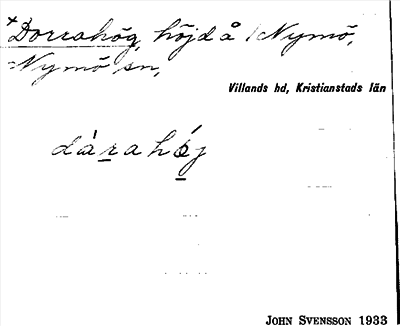 +Dorrahög, höjd å Nymö,
Nymö sn,
Villands hd, Kristianstads län
dàrahój
JOHN SVENSSON 1933